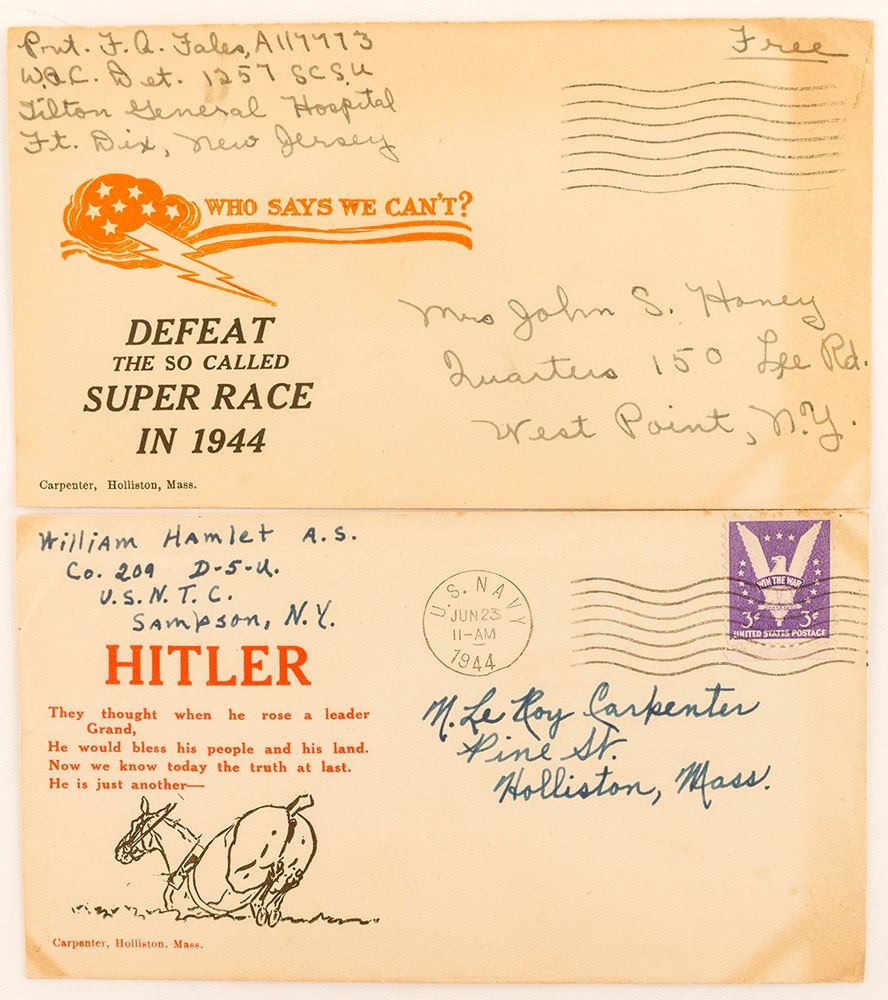 Pvt. F. A. Fales, A117773
W.A.C. Det. 1257 SCSU
Tilton General Hospital
Ft. Dix, New Jersey
Free
WHO SAYS WE CAN'T?
DEFEAT
THE SO CALLED
SUPER RACE
IN 1944
Mrs John S. Haney
Quarters 150 Lee Rd.
West Point, N.Y.
Carpenter, Holliston, Mass.
William Hamlet A.S.
Co. 209 D-5-U.
U.S.N.T.C.
Sampson, N.Y.
U.S. NAVY
JUN 23
11-AM
1944
WIN THE WAR
3¢ 3¢
UNITED STATES POSTAGE
HITLER
They thought when he rose a leader
Grand,
He would bless his people and his land.
Now we know today the truth at last.
He is just another—
N. Le Roy Carpenter
Pine St.
Holliston, Mass.
Carpenter, Holliston. Mass.